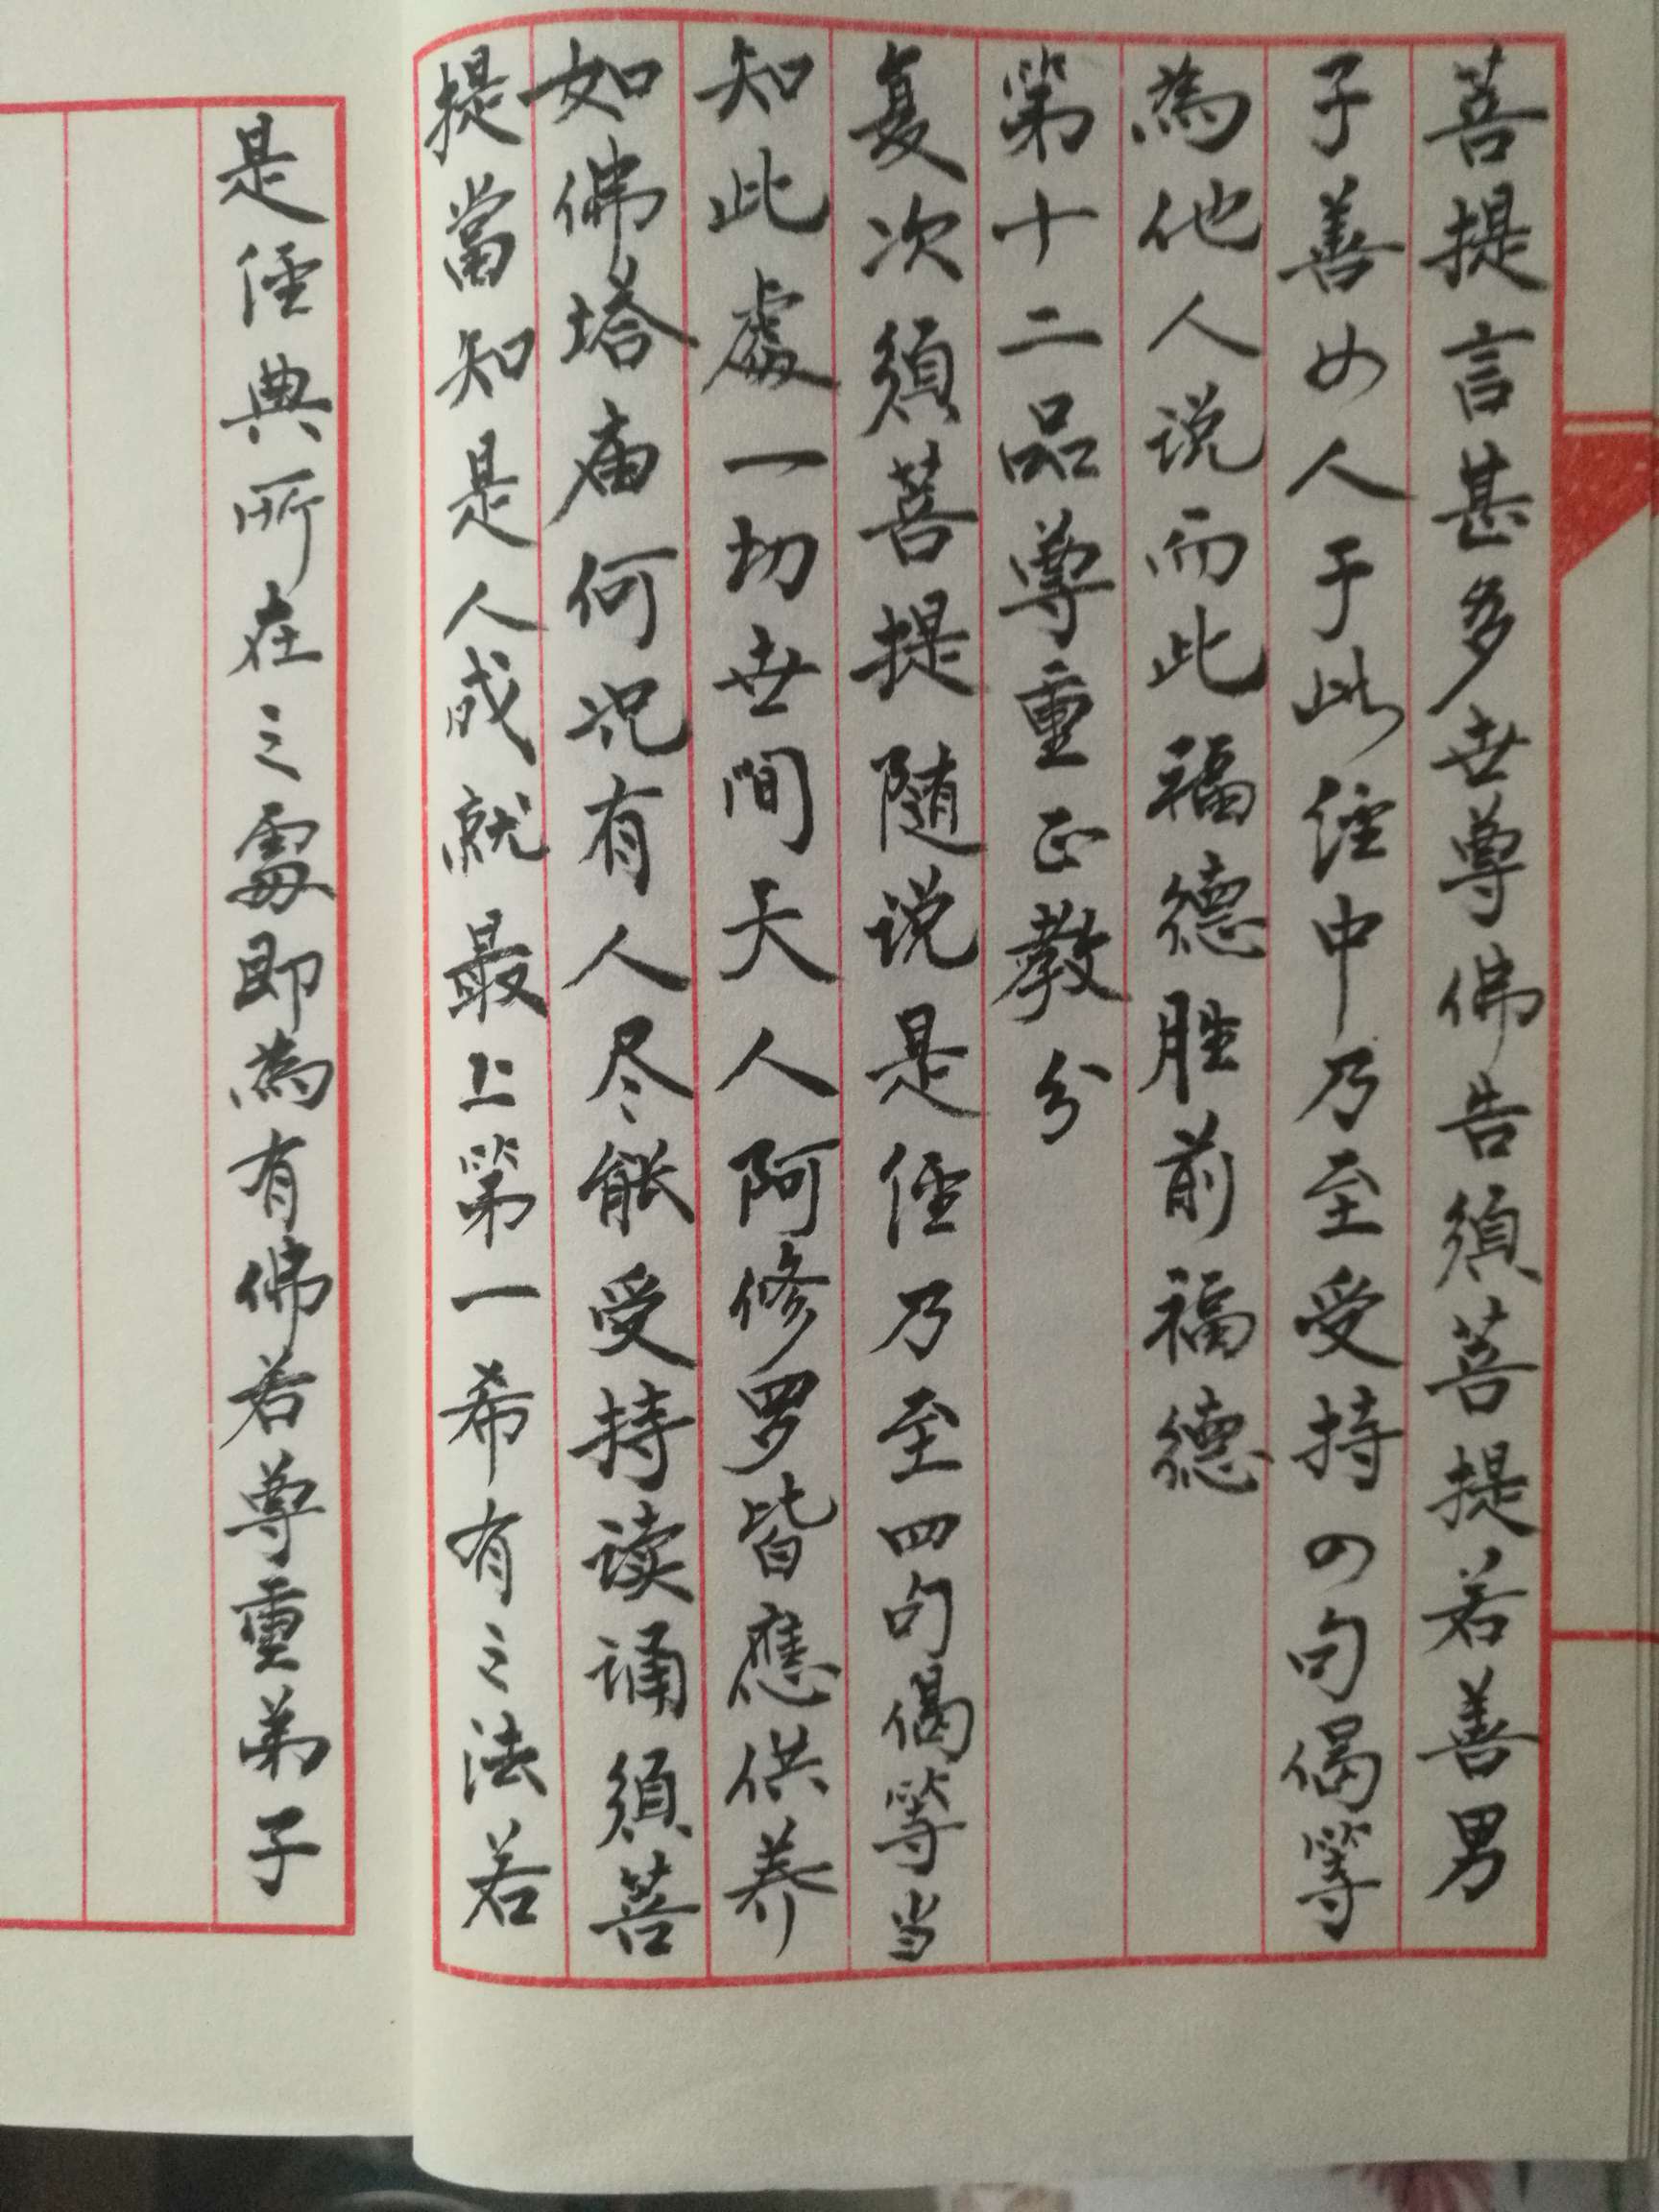 菩提言甚多世尊佛告須菩提若善男
子善女人于此経中乃至受持四句偈等
為他人说而此福德胜前福德
第十二品尊重正教分
复次須菩提随说是経乃至四句偈等当
知此處一切世間天人阿修罗皆應供养
如佛塔庙何况有人尽能受持读诵須菩
提當知是人成就最上第一希有之法若
是経典所在之處即為有佛若尊重弟子